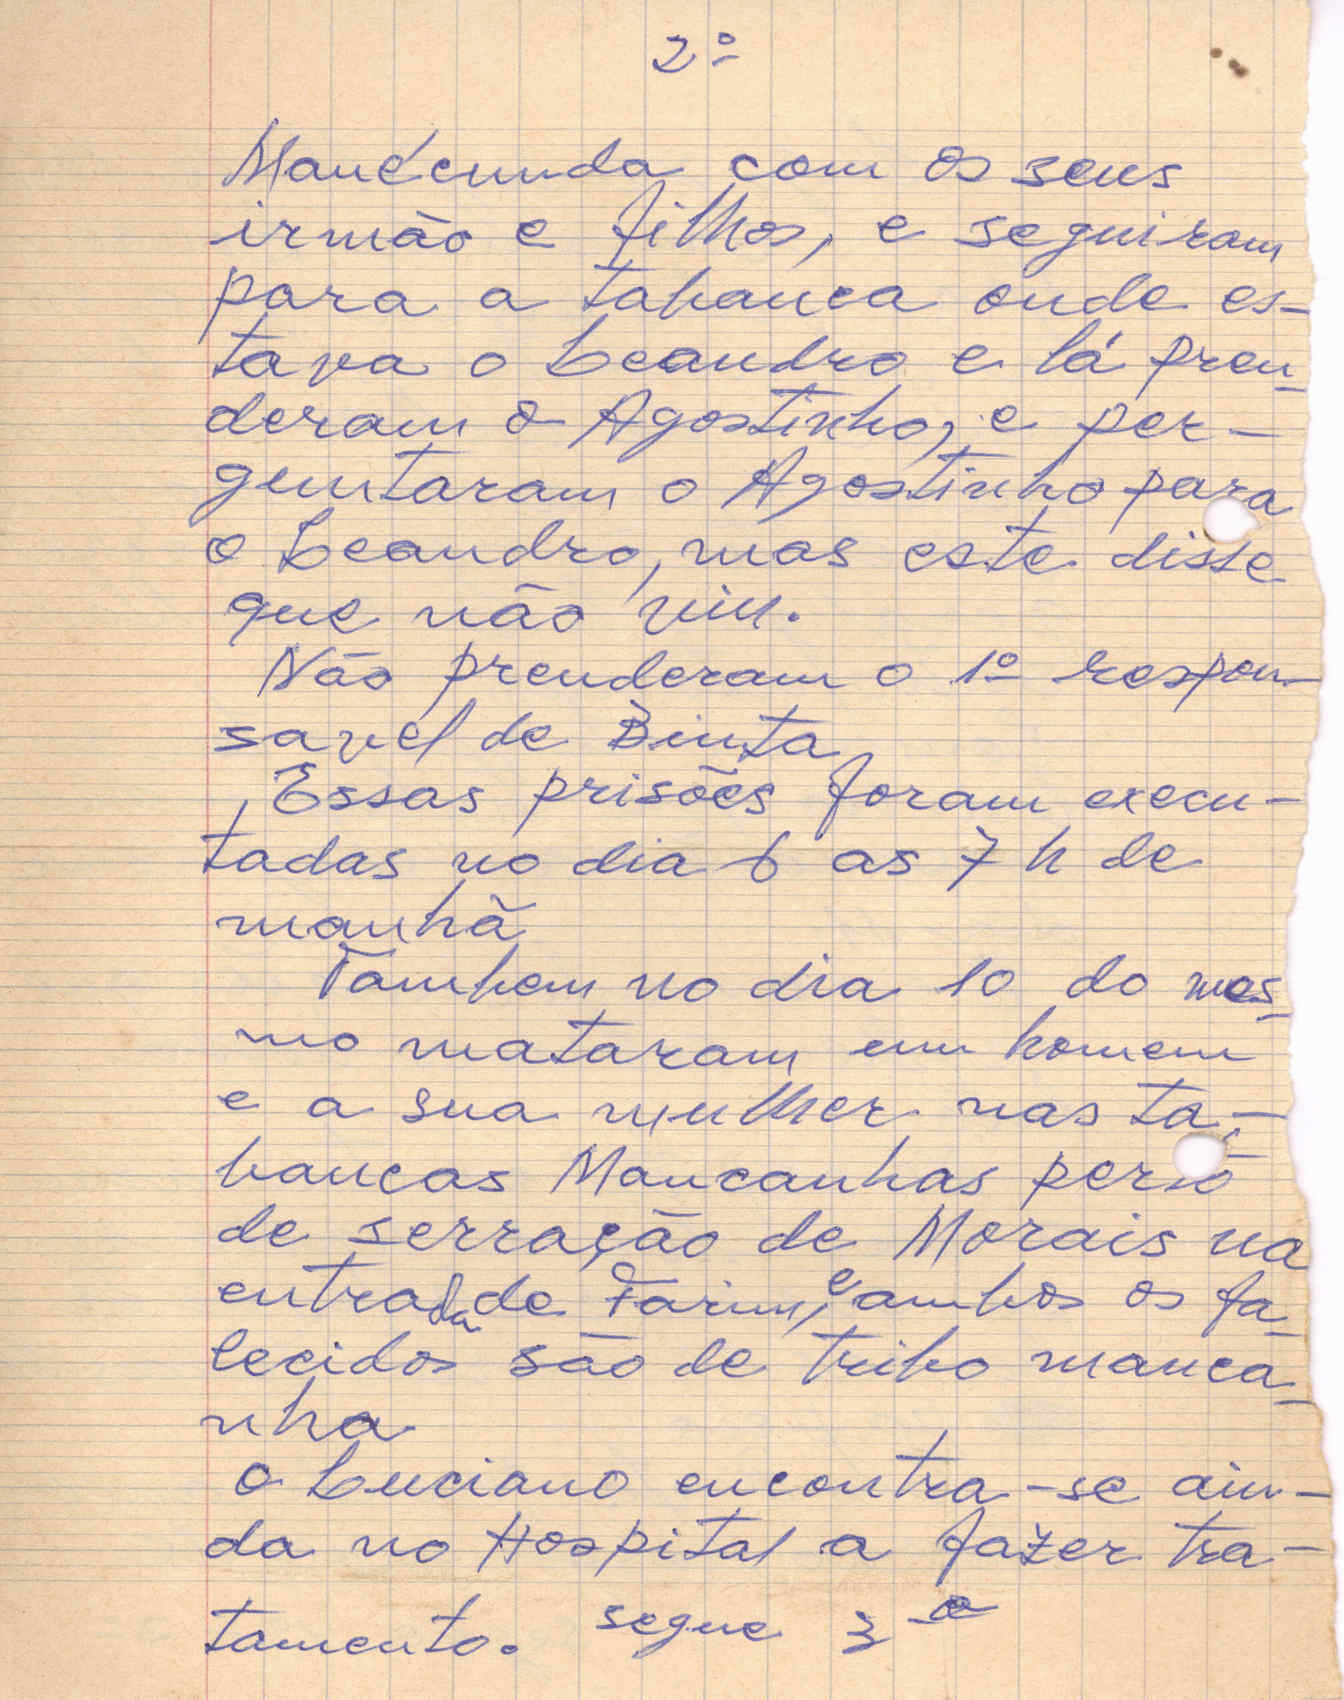 2º
Manécunda com os seus
irmão e filhos, e seguiram
para a tabanca onde es-
tava o Leandro e lá pren-
deram o Agostinho, e per-
guntaram o Agostinho para
o Leandro, mas este disse
que não viu.
Não prenderam o 1º respon-
savel de Binta
Essas prisões foram execu-
tadas no dia 6 as 7 h de
manhã
Tambem no dia 10 do mes-
mo mataram um homem
e a sua mulher nas ta-
bancas Mancanhas perto
de serração de Morais na
entrada de Farim, e ambos os fa-
lecidos são de tribo manca-
nha
O Luciano encontra-se ain-
da no Hospital a fazer tra-
tamento. segue 3º